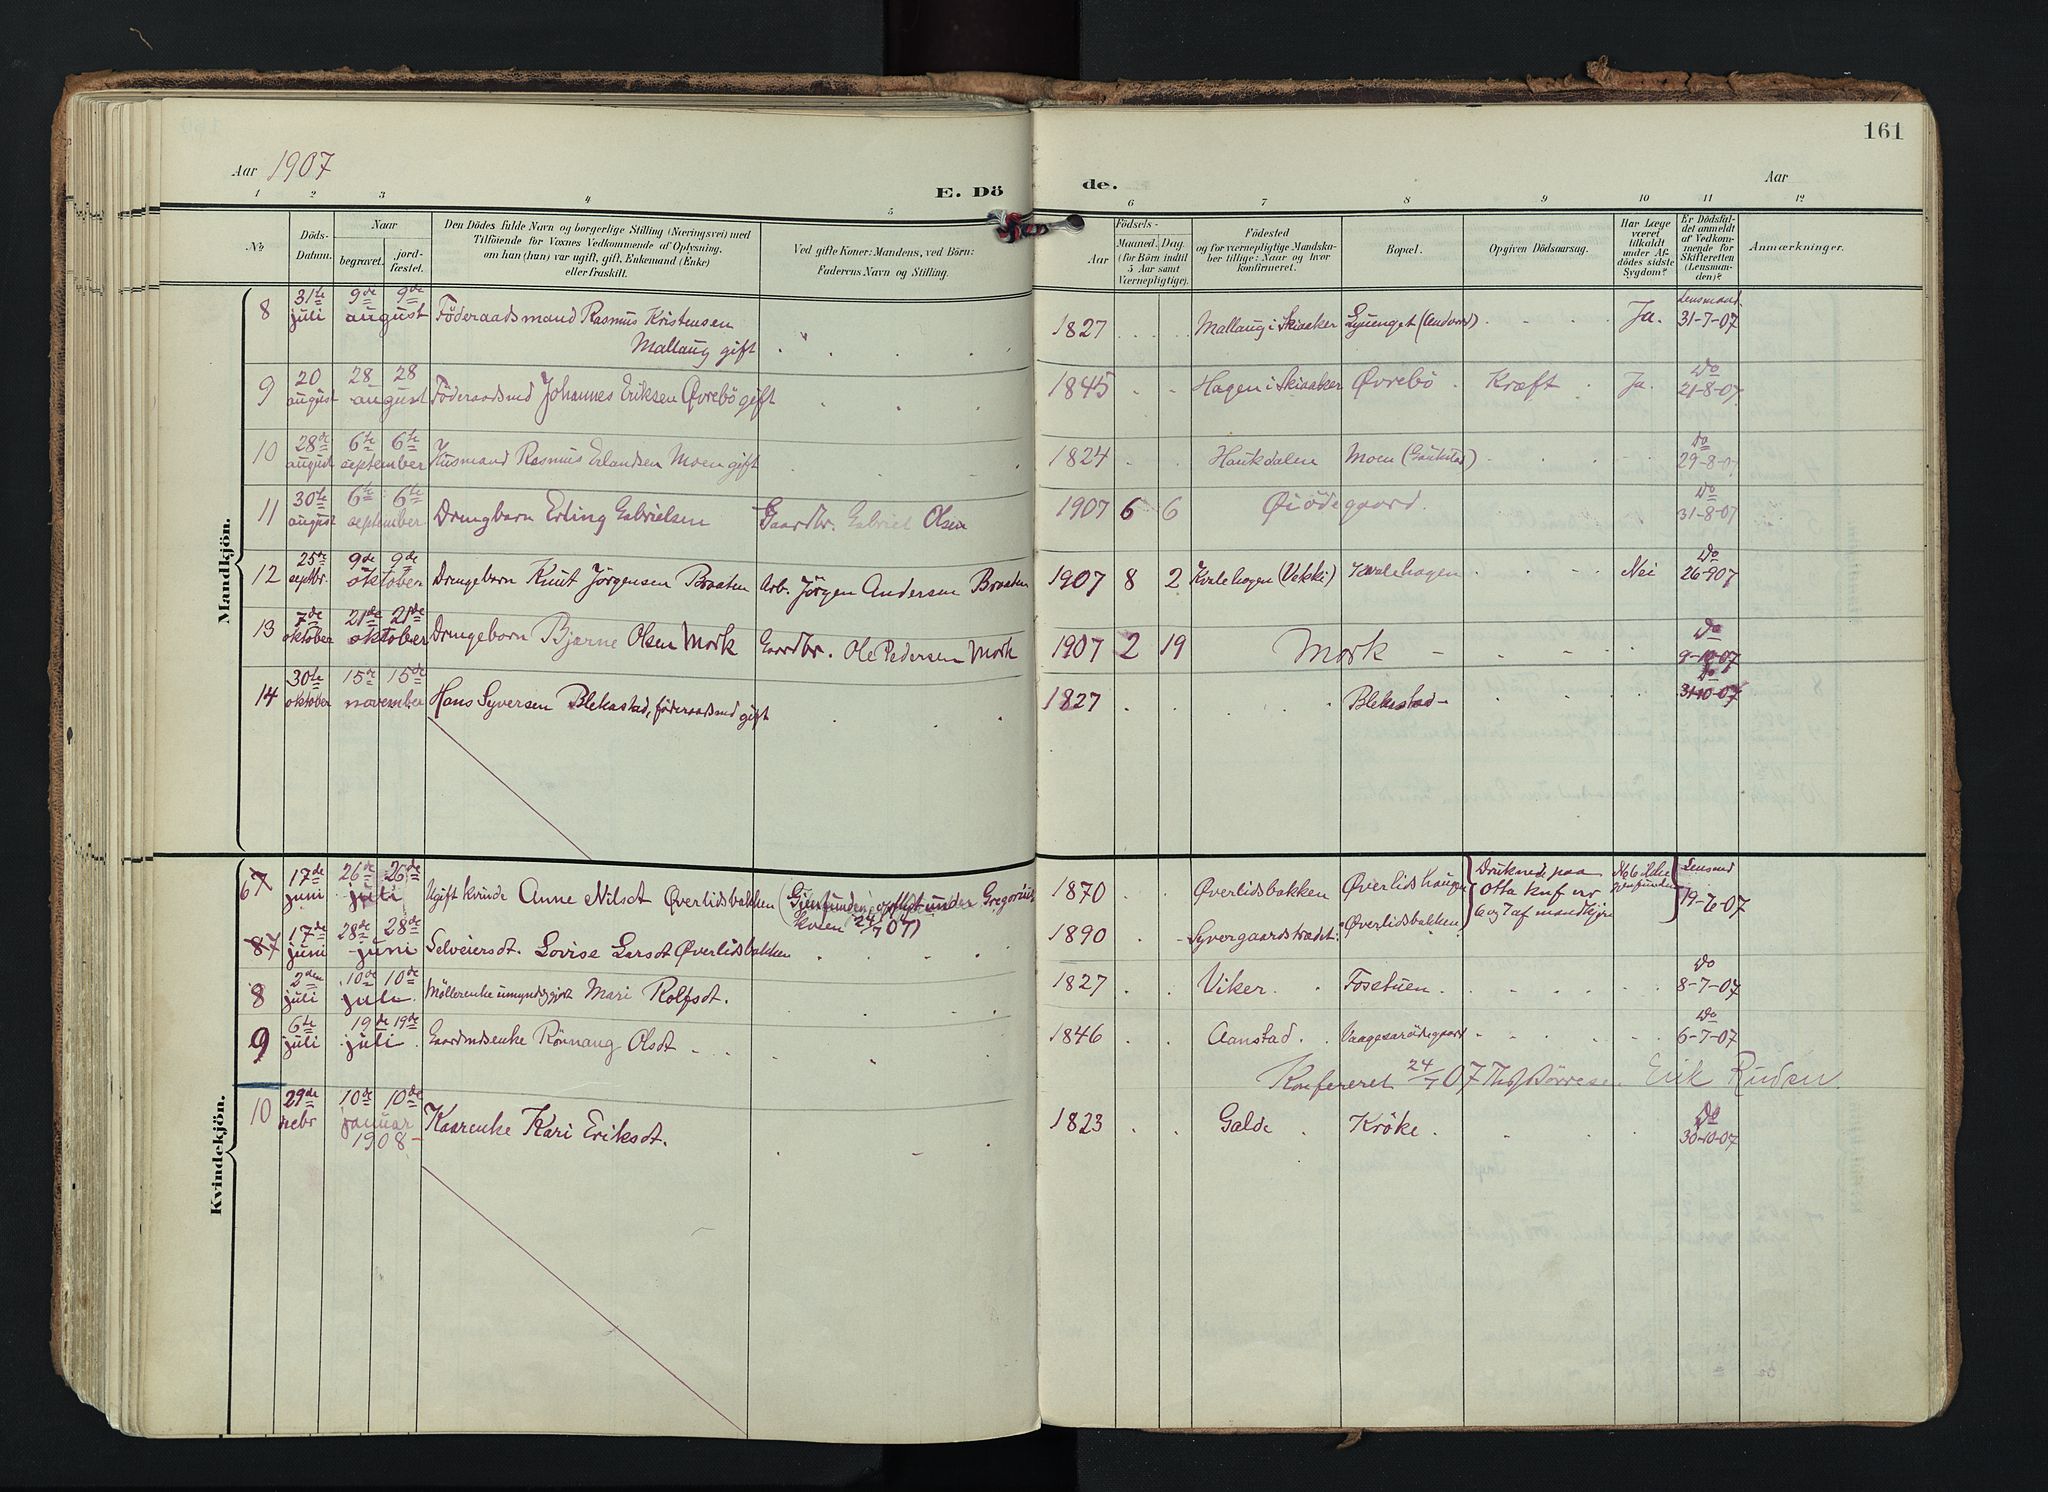 161
Aar 1907
Aar
E. Döde.
1 2 3 4 5 6 7 8 9 10 11 12
No
Döds-Datum.
Naar
begravet.
jord-fæstet.
Den Dödes fulde Navn og borgerlige Stilling (Næringsvei) med
Tilföiende for Voxnes Vedkommende af Oplysning,
om han (hun) var ugift, gift, Enkemand (Enke)
eller fraskilt.
Ved gifte Koner: Mandens, ved Börn:
Faderens Navn og Stilling.
Födsels-
Aar
Maaned. Dag.
(for Börn indtil
5 Aar samt
Værnepligtige).
Födested
og for værnepligtige Mandska-
ber tillige: Naar og hvor
konfirmeret.
Bopæl.
Opgiven Dödsaarsag.
Har Læge
været
tilkaldt
under Af-
dödes sidste
Sygdom?
Er Dödsfal-
det anmeldt
af Vedkom-
mende for
Skifteretten
(Lensman-
den)?
Anmærkninger.
Mandkjön.
8 31te juli 9de 9de august Föderaadsmand Rasmus Kristensen Mallaug gift 1827 Mallaug i Skiaaker (Andvord) Ja. Lensmand 31-7-07
9 20 august 28 28 august Föderaadsmd Johannes Eriksen Øvrebö gift 1845 Hagen i Skiaaker Øvrebö Kræft Ja. Do 21-8-07
10 28de august 6te 6te september Husmand Rasmus Erlandsen Moen gift 1824 Haukdalen Moen (Gaukstad) Do 29-8-07
11 30te august 6te 6te september Drengbarn Erling Gabrielsen Gaardbr. Gabriel Olsen 1907 6 6 Øiödegaard Do 31-8-07
12 25de septbr. 9de 9de oktober Drengebarn Knut Jørgensen Braaten Arb. Jørgen Andersen Braaten 1907 8 2 Kvalehogen (Vekki) Kvalehogen Nei Do 26-907
13 7de oktober 21de 21de oktober Drengebarn Bjarne Olsen Mork Gaardbr. Ole Pedersen Mork 1907 2 19 Mork Do 9-10-07
14 30te oktober 15de 15de november Hans Syversen Blekastad, föderaadsmd gift 1827 Blekastad Do 31-10-07
Kvindekjön.
67 17de juni 26de 26de juli Ugift kvinde Anne Nilsdt Øverlidsbakken (Gjenfunden, under Gregorius 24/7 07) 1870 Øverlidsbakken Øverlidshaugen Druknede paa Otta knf nr 6 og 7 af mandkjön No 6 ikke gjenfunden Lensmd 19-6-07
87 17de juni 28de 28de juni Selveiersdt. Lovise Larsdt Øverlidsbakken 1890 Syvergaardstrædet Øverlidsbakken
8 2den juli 10de 10de juli. Møllerenke umyndiggjort Mari Rolfsdt. 1827 Viker. Fosstuen Do 8-7-07
9 6te juli 19de 19de juli Gaardmdsenke Rönnaug Olsdt 1846 Aanstad Vaagesarödegaard Do 6-7-07
Konfereret 24/7 07 Børresen Erik Ruden
10 29de 10de 10de januar 1908 Kaarenke Kari Eriksdt. 1823 Galde Kröke Do 30-10-07